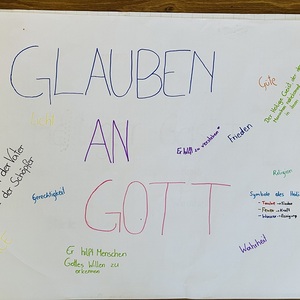 GLAUBEN
AN
GOTT
Güte
Der Heilige Geist der den
Menschen
Frieden
Er hilft zu verstehen
Religion
Gerechtigkeit
der Vater
der Schöpfer
Symbole des Heili
- Taube → Frieden
- Feuer → Kraft
- Wasser → Reinigung
Wahrheit
Er hilft Menschen
Gottes Willen zu
erkennen